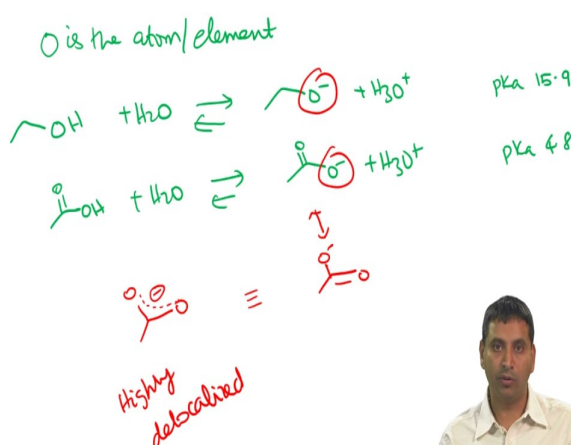 O is the atom/element
OH + H2O ⇌ O⁻ + H3O+ pka 15.9
O
O OH + H2O ⇌ O⁻ + H3O+ pKa 4.8
↕
O⁻
O ⊖ O ≡ O
Highly
delocalized